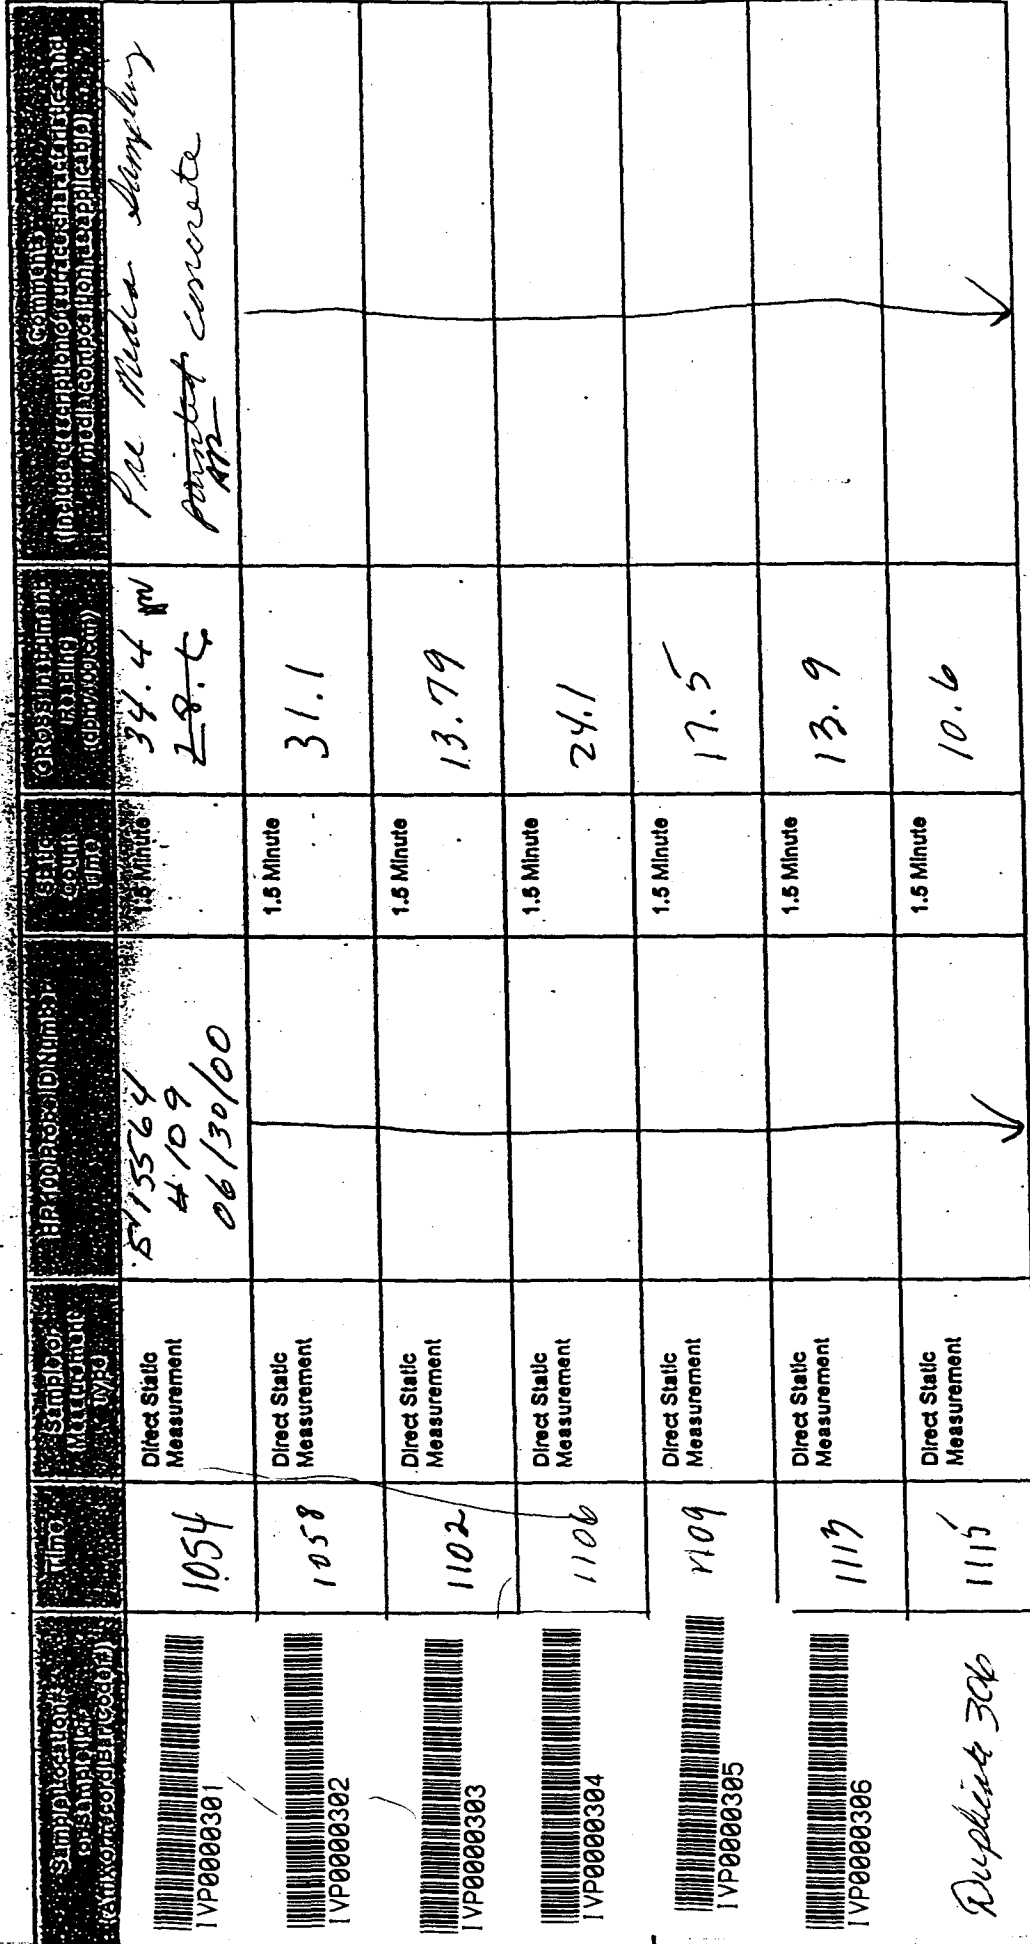 Sample Location #
or Sample ID #
(Affix/Record Bar Code #)
Time
Sample or
Measurement
Type
HP-100 Probe ID Number
Static
Count
Time
GROSS Instrument
Reading
(dpm/100cm²)
Comments
(Include description of surface characteristic and
media composition, as applicable)
IVP0000301
1054
Direct Static
Measurement
# 109
06/30/00
1.5 Minute
34.4
Pre Media Sampling
painted concrete
IVP0000302
1058
Direct Static
Measurement
1.5 Minute
31.1
IVP0000303
1102
Direct Static
Measurement
1.5 Minute
13.79
IVP0000304
1106
Direct Static
Measurement
1.5 Minute
24.1
IVP0000305
1109
Direct Static
Measurement
1.5 Minute
17.5
IVP0000306
1113
Direct Static
Measurement
1.5 Minute
13.9
Duplicate 306
1115
Direct Static
Measurement
1.5 Minute
10.6